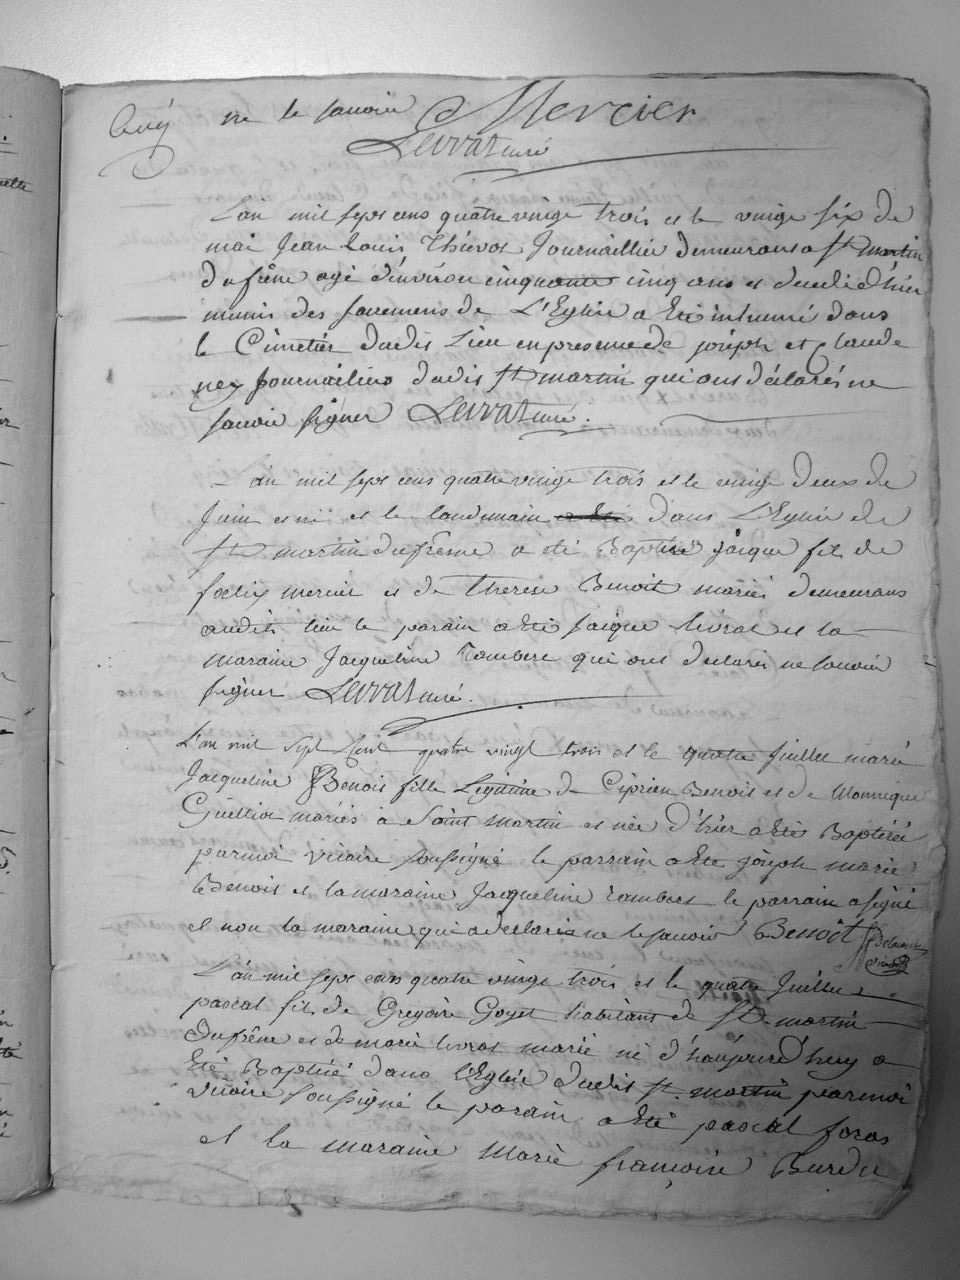 ne le savoir Mercier
Levrat curé
L'an mil sept cens quatre vingt trois et le vingt six de
mai Jean Louis Thievos Journaillier demeurans a St martin
du frêne agé d'environ cinquante cinq ans et decedé d'hier
muni des sacremens de L'Eglise a eté inhumé dans
le Cimetier dudit Lieu en presence de joseph et Claude
ney Journailiers dudit St martin qui ont déclarés ne
savoir signer Levrat curé.
L'an mil sept cens quatre vingt trois et le vingt deux de
Juin est né et le landemain dans L'Eglise de
St martin du fresne a été Baptisé jacque fils de
foelix mercier et de Therese Benoit mariés demeurans
audit lieu le parain a eté jacque Livrat et la
maraine Jacqueline Tombere qui ont declarés ne savoir
signer Levrat curé.
L'an mil sept cent quatre vingt trois et le quatre juillet marie
Jacqueline Benoit fille Legitime de Ciprien Benoit et de Monnique
Guilliot mariés a Saint martin et née d'hier a eté Baptisée
par moi vicaire soussigné le parrain a eté joseph marie
Benoit et la maraine Jacqueline Tombere le parrain a signé
et non la maraine qui a declaré ne le savoir Benoît
L'an mil sept cens quatre vingt trois et le quatre Juillet
pascal fils de Gregoire Goyet habitant de St martin
du frêne et de marie livrat mariés né d'haujourd'huy a
été Baptisé dans l'Eglise dudit St martin par moi
vicaire soussigné le parain a été pascal foras
et la maraine Marie françoise Burdet